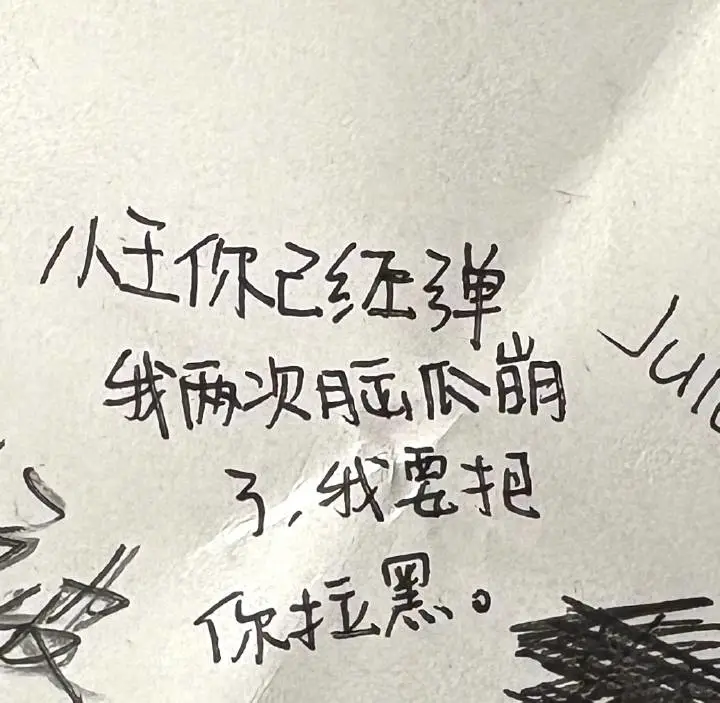 小王你已经弹
我两次脑瓜崩
了,我要把
你拉黑。